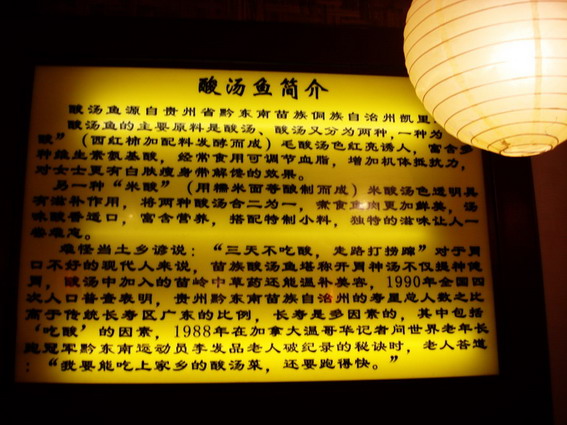 酸汤鱼简介
酸汤鱼源自贵州省黔东南苗族侗族自治州凯里
酸汤鱼的主要原料是酸汤、酸汤又分为两种,一种为
酸”(西红柿加配料发酵而成)毛酸汤色红亮诱人,富含多
种维生素氨基酸,经常食用可调节血脂,增加机体抵抗力,
对女士更有白肤瘦身带解馋的效果。
另一种“米酸”(用糯米面等酸制而成)米酸汤色透明具
有滋补作用,将两种酸汤合二为一,煮食鱼肉更加鲜美,汤
味酸香适口,富含营养,搭配特制小料,独特的滋味让人一
尝难忘。
难怪当土乡谚说:“三天不吃酸,走路打捞蹿”对于胃
口不好的现代人来说,苗族酸汤鱼堪称开胃神汤不仅提神健
胃,酸汤中加入的苗岭中草药还能温补美容,1990年全国四
次人口普查表明,贵州黔东南苗族自治州的寿星总人数之比
高于传统长寿区广东的比例,长寿是多因素的,其中包括
‘吃酸’的因素,1988年在加拿大温哥华记者问世界老年长
跑冠军黔东南运动员李发品老人破纪录的秘诀时,老人答道
:“我要能吃上家乡的酸汤菜,还要跑得快。”